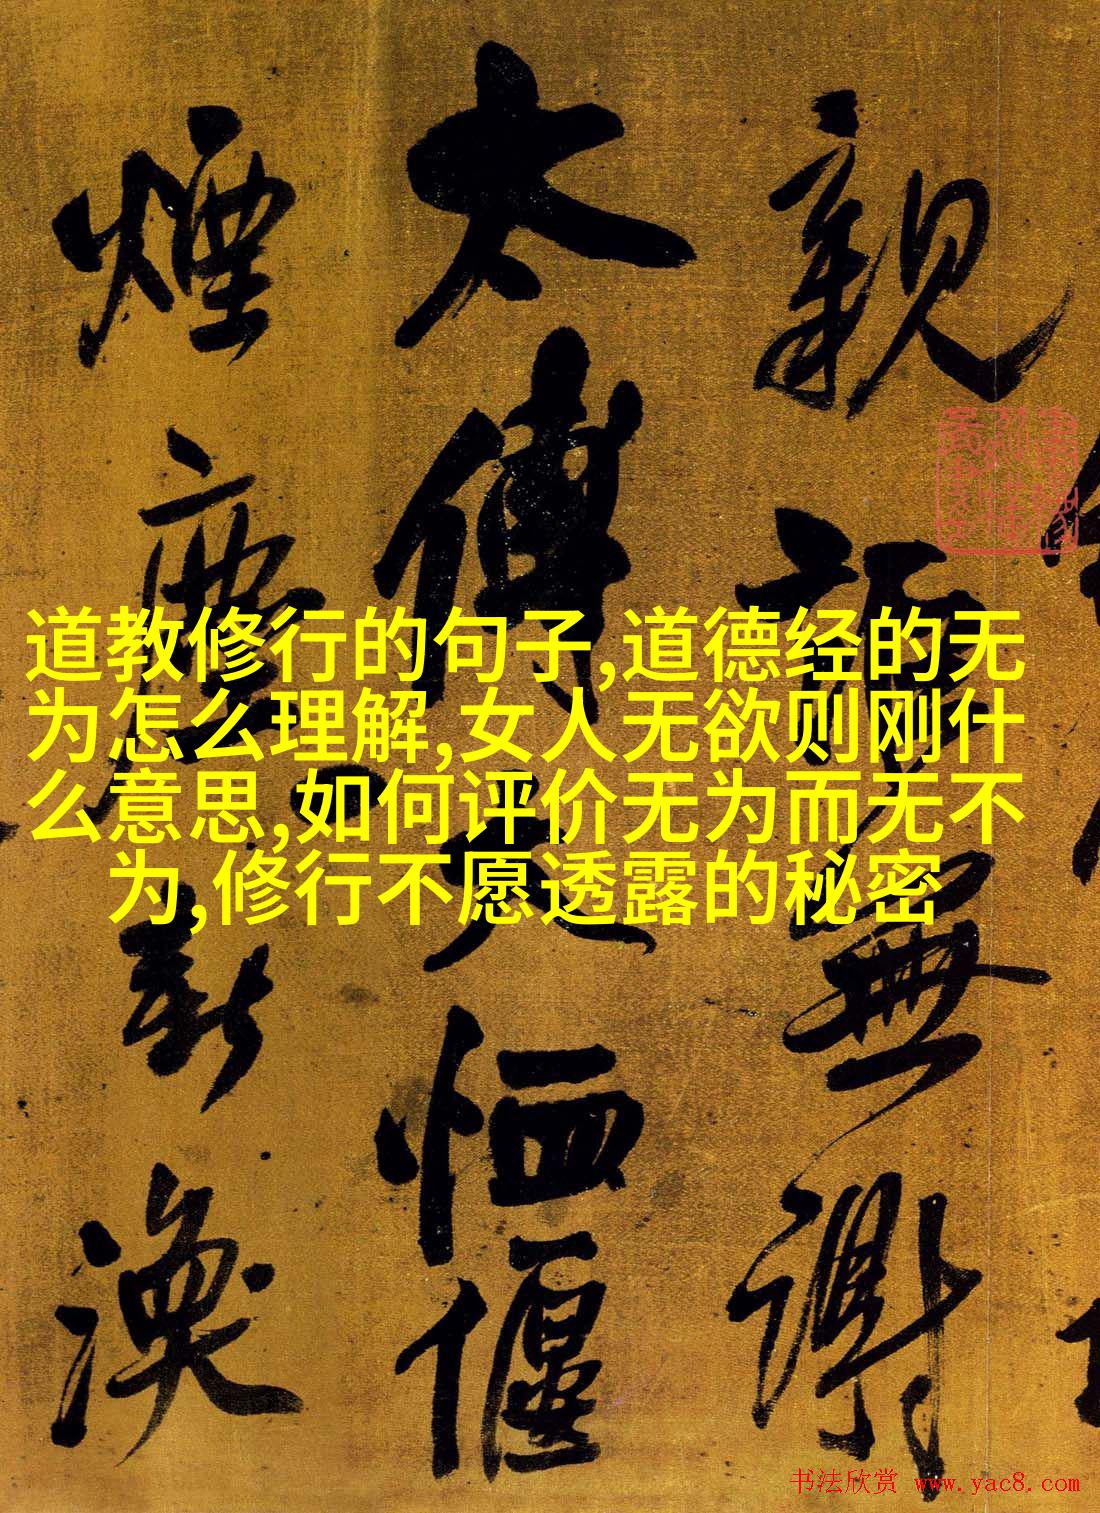 親 詎 無 謝
太 傅 恤 偃
煙 塵 渙
道教修行的句子,道德经的无
为怎么理解,女人无欲则刚什
么意思,如何评价无为而无不
为,修行不愿透露的秘密
书法欣赏 www.yac8.com